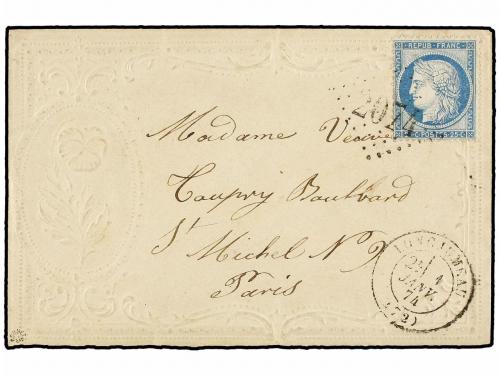 REPUB·FRANC
25 C·POSTE·25 C
2074
Madame Veuve
Toupry Boulvard
St Michel N 9
Paris
LONGJUMEAU
1
JANV.
74
(72)